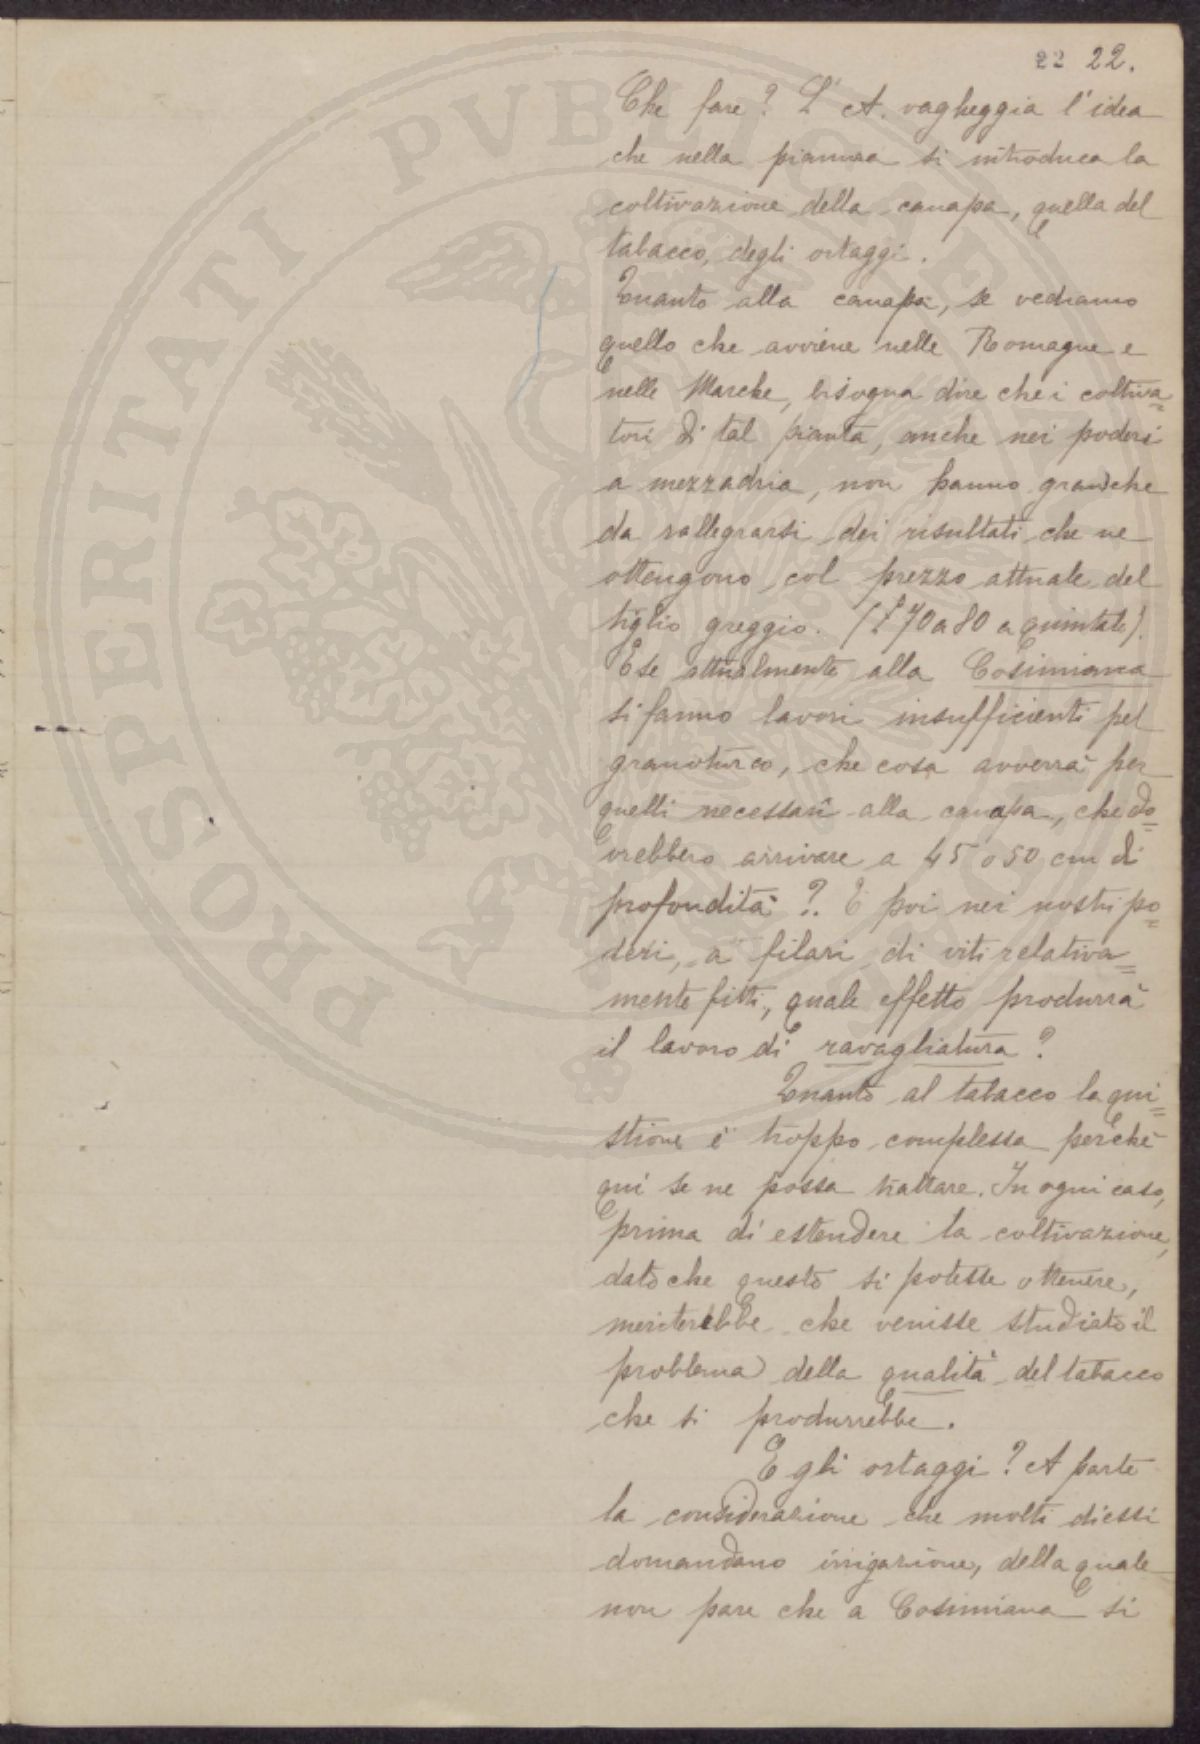 22 22.
Che fare? L'A. vagheggia l'idea
che nella pianura si introduca la
coltivazione della canapa, quella del
tabacco, degli ortaggi.
Quanto alla canapa, se vediamo
quello che avviene nelle Romagne e
nelle Marche, bisogna dire che i coltiva=
tori di tal pianta, anche nei poderi
a mezzadria, non hanno granchè
da rallegrarsi dei risultati che ne
ottengono col prezzo attuale del
tiglio greggio. (£ 70 a 80 a quintale).
E se attualmente alla Cosimiana
si fanno lavori insufficienti pel
granoturco, che cosa avverrà per
quelli necessarî alla canapa, che do=
vrebbero arrivare a 45 o 50 cm di
profondità?. E poi nei nostri po=
deri, a filari di viti relativa=
mente fitti, quale effetto produrrà
il lavoro di ravagliatura?
Quanto al tabacco la qui=
stione è troppo complessa perchè
qui se ne possa trattare. In ogni caso,
prima di estendere la coltivazione,
dato che questo si potesse ottenere,
meriterebbe che venisse studiato il
problema della qualità del tabacco
che si produrrebbe.
E gli ortaggi? A parte
la considerazione che molti di essi
domandano irrigazione, della quale
non pare che a Cosimiana si
PROSPERITATI PVBLICAE